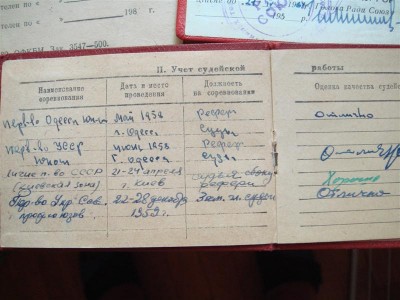 телен по «
198 г.
СФКБМ Зак. 3547—500.
Голова Ради Союзу
195
II. Учет судейской
работы
Наименование соревнования
Дата и место проведения
Должность на соревновании
Оценка качества судейс
перв-во Одессы Юнош
Май 1958
г. Одесса
Рефери
судья
отлично
перв-во УССР
Юнош
Июнь 1958
г. Одесса
Рефери
судья
Отлично
Личное п-во СССР
21-24 апреля
г. Киев
рефери
Хорошо
Укр. Сов.
профсоюзов
22-28 декабря
1959 г.
Зам. гл. судьи
Отлично